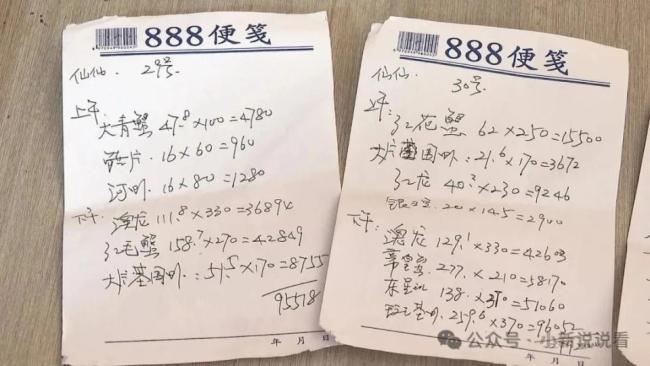 888便笺
仙仙. 29号.
上午:
大青蟹 47.8×100=4780
16×60=960
河虾. 16×80=1280
下午: 澳龙 111.8×330=36894
红毛蟹 158.7×270=42849
大片基围虾: 51.5×170=8755
95518
年 月 日
888便笺
仙仙 30号.
上午:
红花蟹 62×250=15500
大片基围虾: 21.6×170=3672
红龙 40.2×230=9246
20×145=2900
下午:
澳龙 129.1×330=42603
277.×210=58170
东星斑 138.×370=51060
259.6×370=96052
年 月 日
公众号·小新说说看